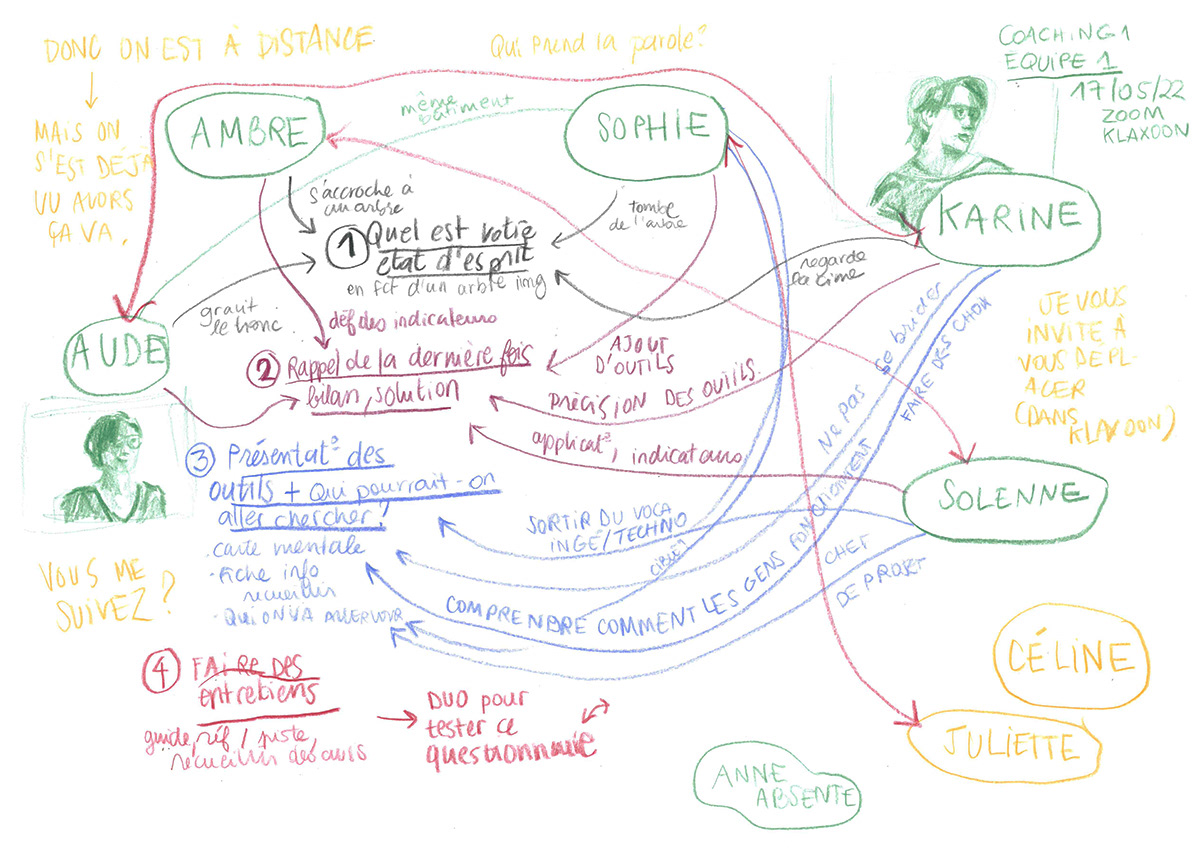 DONC ON EST À DISTANCE
MAIS ON
S'EST DÉJÀ
VU ALORS
ÇA VA.
Qui prend la parole?
COACHING 1
EQUIPE 1
17/05/22
ZOOM
KLAXOON
AMBRE
même
bâtiment
SOPHIE
KARINE
s'accroche à
un arbre
tombe
de l'arbre
1 Quel est votre
état d'esprit
en fct d'un arbre img
regarde
la cime
AUDE
le tronc
déf des indicateurs
2 Rappel de la dernière fois
bilan, solution
AJOUT
D'OUTILS
PRÉCISION DES OUTILS
applicat°, indicateurs
JE VOUS
INVITE À
VOUS DEPL-
ACER
(DANS
KLAXOON)
Ne pas se brider
FAIRE DES CHOIX
SOLENNE
3 Présentat° des
outils + Qui pourrait-on
aller chercher?
. carte mentale
- Fiche info
recueillir
- QUI ON VA ALLER VOIR
SORTIR DU VOCA
INGÉ/TECHNO
ciblé?
COMPRENDRE COMMENT LES GENS FONCTIONNENT
CHEF
DE PROJET
VOUS ME
SUIVEZ?
4 FAIRE DES
entretiens
guide, réf / piste,
recueillir des avis
DUO pour
tester ce
questionnaire
CÉLINE
JULIETTE
ANNE
ABSENTE